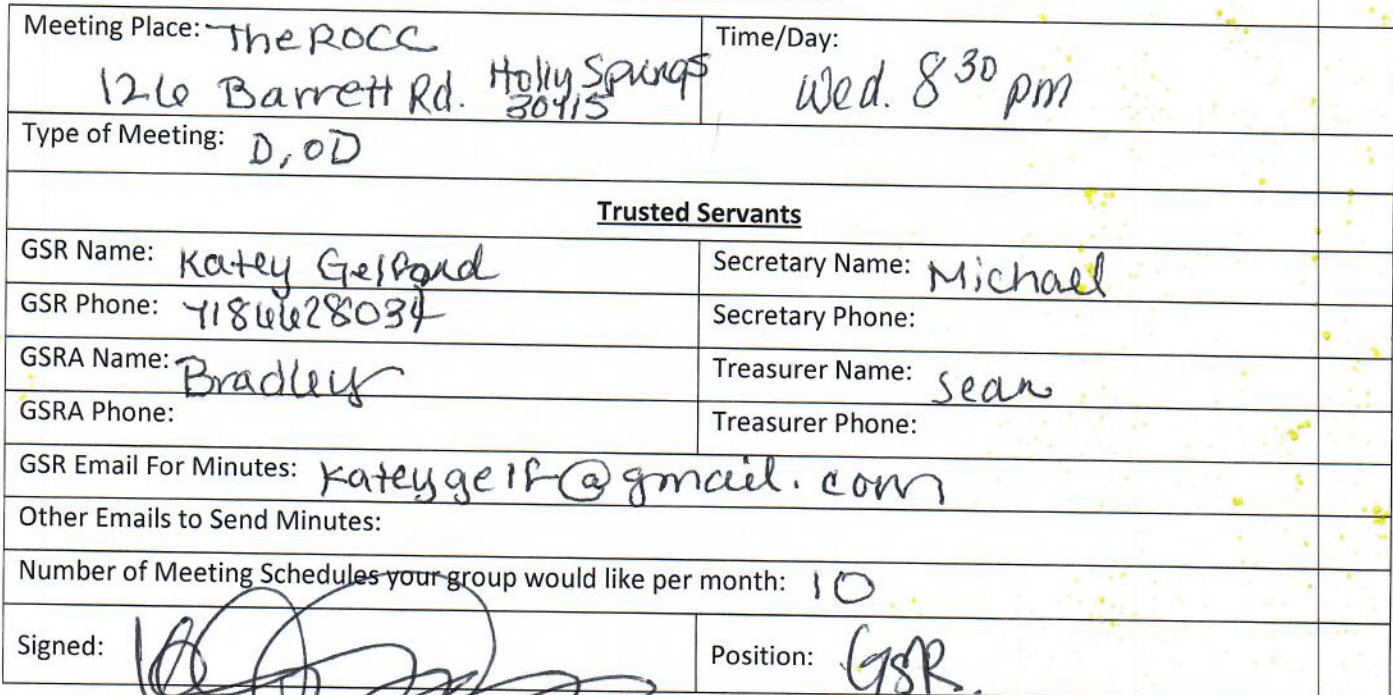 Meeting Place: The ROCC
126 Barrett Rd. Holly Springs
30115
Time/Day:
Wed. 8 30 pm
Type of Meeting: D, OD
Trusted Servants
GSR Name: Katey Gelfand
Secretary Name: Michael
GSR Phone:
Secretary Phone:
GSRA Name: Bradley
Treasurer Name: Sean
GSRA Phone:
Treasurer Phone:
GSR Email For Minutes: kateygelf@gmail.com
Other Emails to Send Minutes:
Number of Meeting Schedules your group would like per month: 10
Signed:
Position: GSR.